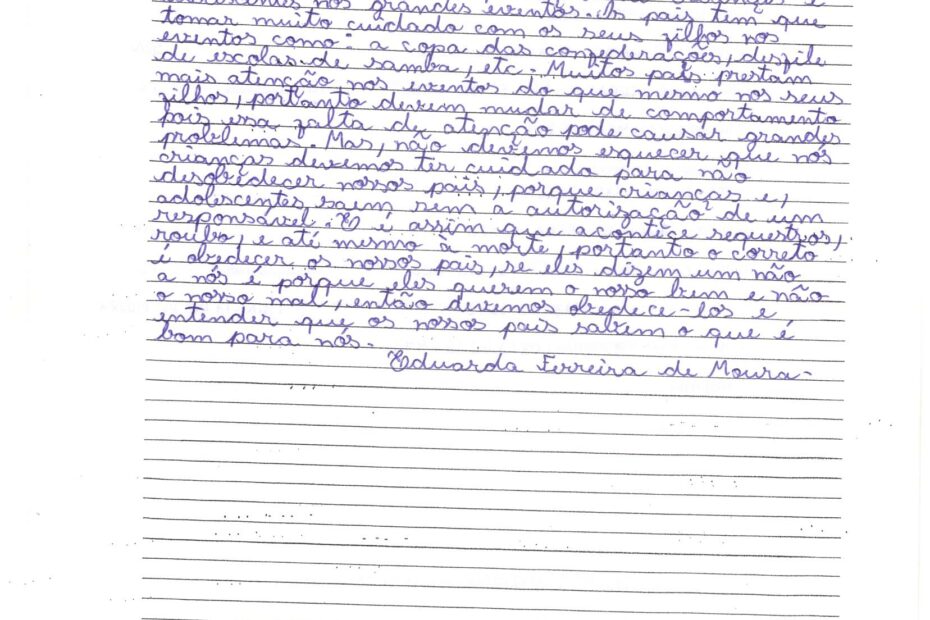 nos grandes eventos. Os pais tem que
tomar muito cuidado com os seus filhos nos
eventos como: a copa das confederações, desfile
de escolas de samba, etc. Muitos pais prestam
mais atenção nos eventos do que mesmo nos seus
filhos, portanto devem mudar de comportamento
pois essa falta de atenção pode causar grandes
problemas. Mas, não devemos esquecer que nós
crianças devemos ter cuidado para não
desobedecer nossos pais, porque crianças e,
adolescentes saem sem a autorização de um
responsável. E é assim que acontece sequestros,
roubo, e até mesmo à morte, portanto o correto
é obedecer os nossos pais, se eles dizem um não
a nós é porque eles querem o nosso bem e não
o nosso mal, então devemos obedece-los e
entender que os nossos pais sabem o que é
bom para nós.
Eduarda Ferreira de Moura-